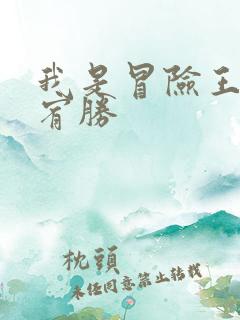 我是冒險王
宥勝
枕頭
未经同意禁止转载